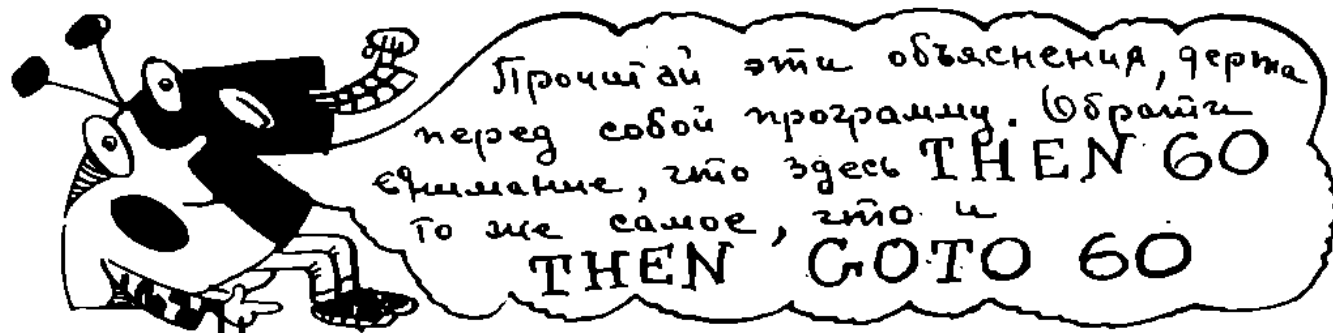 Прочитай эти объяснения, держа
перед собой программу. Обрати
внимание, что здесь THEN 60
то же самое, что и
THEN GOTO 60